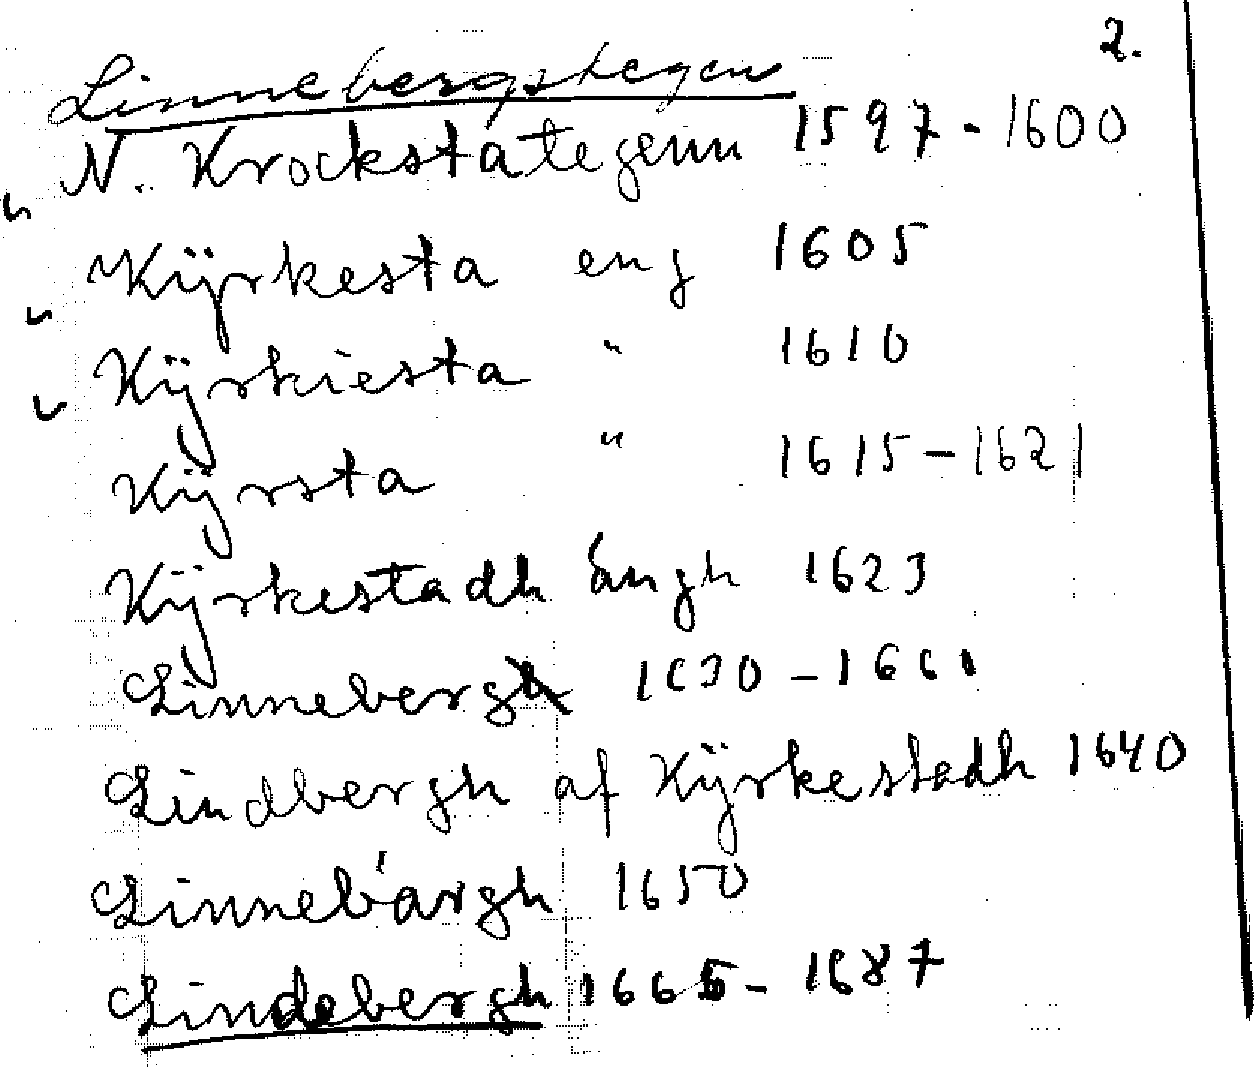 2.
Linnebergstegen
N. Krockstategenn 1597-1600
Kÿrkesta eng 1605
Kÿrkiesta " 1610
Kÿrsta " 1615-1621
Kÿrkestadh ángh 1623
Linneberg 1630-1661
Lindbergh af Kÿrkestadh 1640
Linnebárgh 1650
Lindebergh 1665-1687